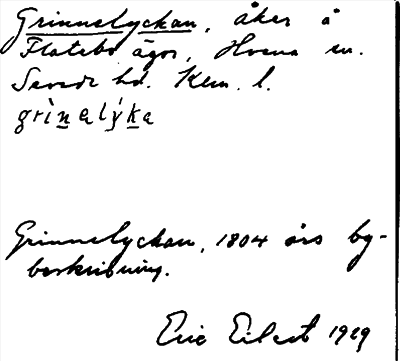 Grinnelyckan, åker å
Flatebo ägor, Hvena sn.
Sevede hd. Klm. l.
grìnalýka
Grinnelyckan, 1804 års by-
beskrifning.
Eric Eilert 1929